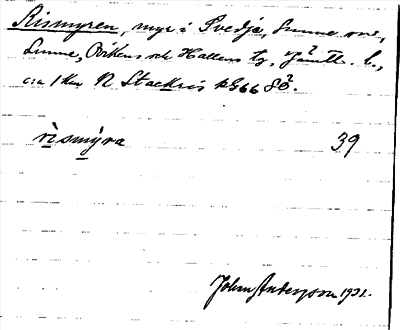 Rismyren, myr i Svedje, Sunne sn,
Sunne, Oviken och Hallens tg, Jämtl. l.,
c:a 1 km N Stackris kg66 8ö².
rismýra 39
John Andersson 1931.